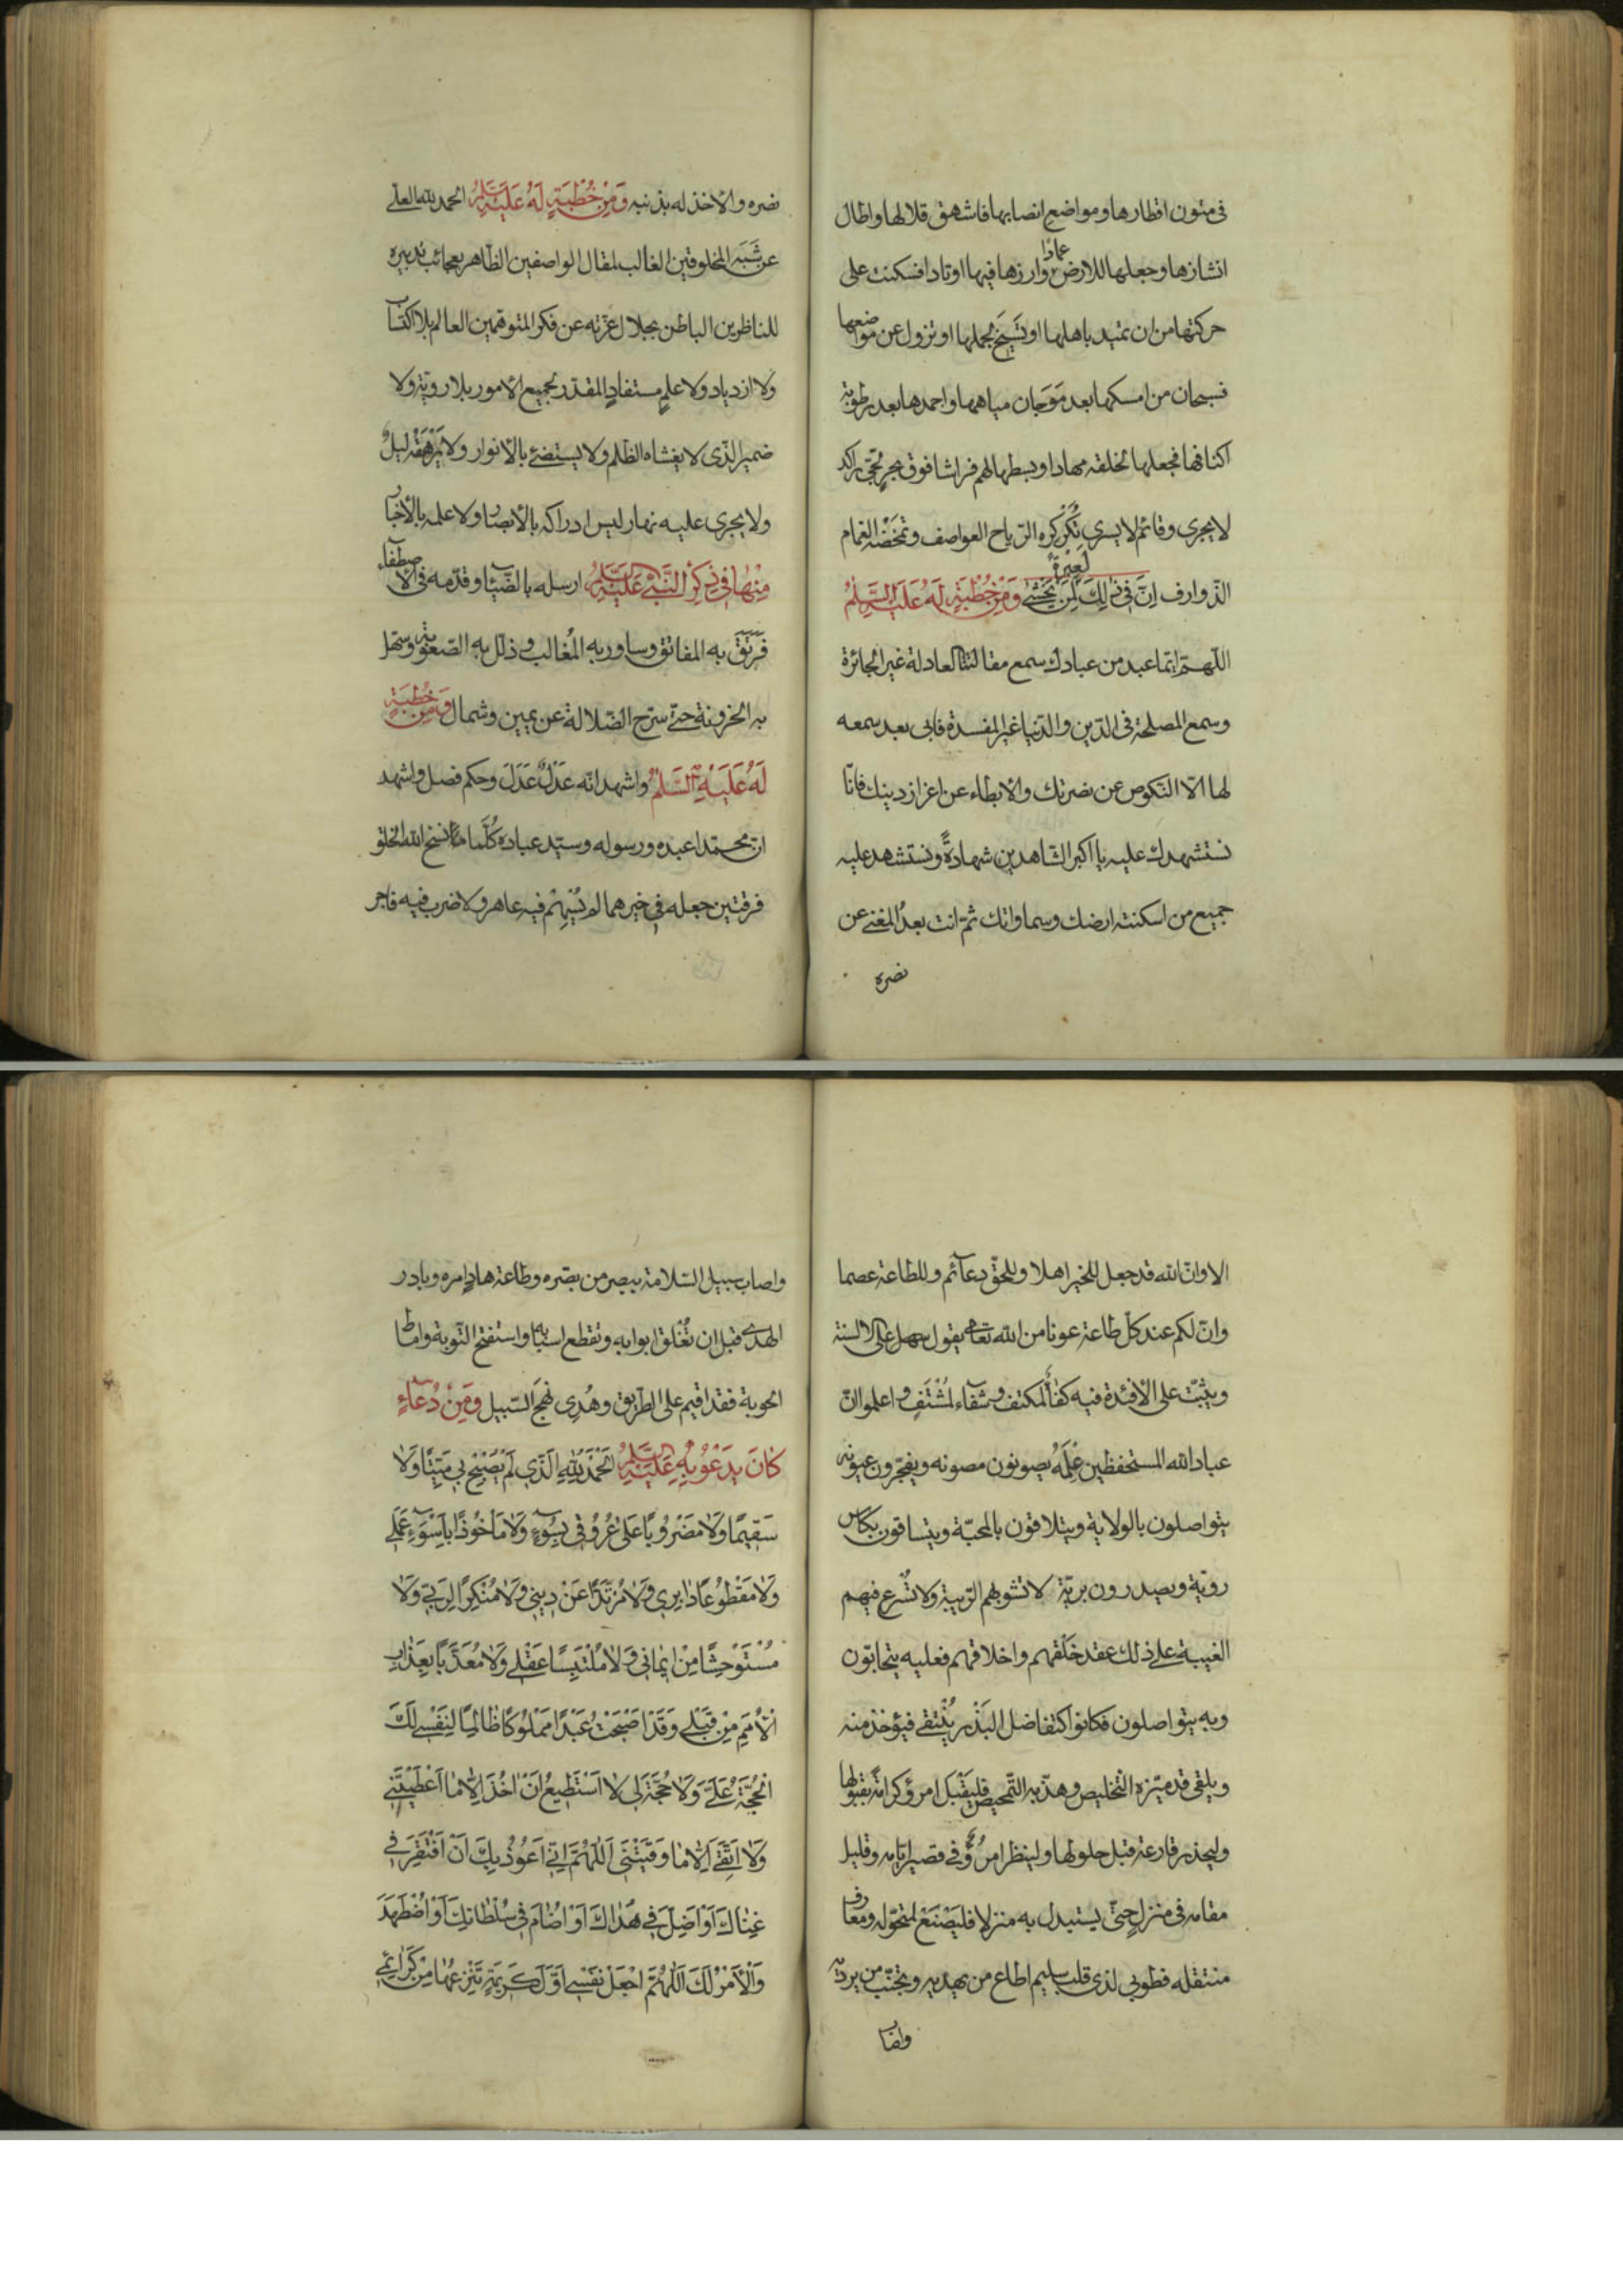 فى متون اقطارها ومواضع انصابها فاشهق قلالها واطال
انشازها وجعلها للارض عمادا وارزها فيها اوتادا فسكنت على
حركتها من ان تميد باهلها او تسيخ بحملها او تزول عن مواضعها
فسبحان من امسكها بعد موجان مياهها واجمدها بعد رطوبة
اكنافها فجعلها لخلقه مهادا وبسطها لهم فراشا فوق بحر لجّى راكد
لا يجرى وقائم لا يسرى تكركره الرّياح العواصف وتمخضه الغمام
الذّوارف اِنَّ فى ذٰلِكَ لَعِبْرَةً لِمَنْ يَخْشٰى وَمِنْ خُطْبَةٍ لَهُ عَلَيْهِ السَّلٰمُ
اللّهمّ ايّما عبد من عبادك سمع مقالتنا العادلة غير الجائرة
وسمع المصلحة فى الدّين والدّنيا غير المفسدة فابى بعد سمعه
لها الّا النّكوص عن نصرتك والابطاء عن اعزاز دينك فانّا
نستشهدك عليه يا اكبر الشّاهدين شهادةً ونستشهد عليه
جميع من اسكنته ارضك وسماواتك ثمّ انت بعدُ المغنى عن
نصره
نصره والاخذ له بذنبه وَمِنْ خُطْبَةٍ لَهُ عَلَيْهِ السَّلٰمُ الحمد للّه العلىّ
عن شَبَه المخلوقين الغالب لمقال الواصفين الظّاهر بعجائب تدبيره
للناظرين الباطن بجلال عزّته عن فكر المتوهّمين العالم بلا اكتساب
ولا ازدياد ولا علمٍ مستفادٍ المقدّر لجميع الامور بلا رويّة ولا
ضمير الّذى لا يغشاه الظّلم ولا يستضئ بالانوار ولا يَرْهَقُه ليلٌ
ولا يجرى عليه نهار ليس ادراكه بالابصار ولا علمه بالأخبار
مِنْهٰا فى ذِكْرِ النَّبِىّ عَلَيْهِ السَّلٰمُ ارسله بالضّياء وقدّمه فى الاصطفآء
فَرَتَقَ به المفاتق وساور به المُغالب وذلّل به الصّعوبة وسهّل
به الحزونة حتّى سرّح الضّلالة عن يمين وشمال وَمِنْ خُطْبَةٍ
لَهُ عَلَيْهِ السَّلٰمُ واشهد انّه عَدْلٌ عَدَلَ وحكم فصل واشهد
انّ محمّدا عبده ورسوله وسيّد عباده كُلَّما نسخ اللّه الخلق
فرقتين جعله فى خيرهما لم يُسْهِمْ فيه عاهر ولا ضرب فيه فاجر
الا وانّ اللّه قد جعل للخير اهلا وللحقّ دعآئم وللطاعة عصما
وانّ لكم عند كلّ طاعة عونا من اللّه تعالى يقول على الالسنة
ويثبّت على الافئدة فيه كفاء لمكتف وشفآء لمُشْتَفٍ واعلموا انّ
عباد اللّه المستحفظين عِلْمَهُ يصونون مصونه ويفجّرون عيونه
يتواصلون بالولاية ويتلاقون بالمحبّة ويتساقون بكاس
رويّة ويصدرون بريّة لا تشوبهم الرّيبة ولا تُسرع فيهم
الغيبة على ذلك عقد خَلْقهم واخلاقهم فعليه يتحابّون
وبه يتواصلون فكانوا كتفاضل البَذْر يُنْتقى فيؤخذ منه
ويلقى قد ميّزه التّخليص وهذّبه التّمحيص فليَقْبَل امرؤ كرامةً بقبولها
وليحذر قارعة قبل حلولها ولينظر امرُؤٌ فى قصير ايّامه وقليل
مقامه فى منزل حتّى يستبدل به منزلا فليَصْنَعْ لمتحوّله ومعارف
منتقله فطوبى لذى قلب سليم اطاع من يهديه وتجنّب من يرديه
واصاب
واصاب سبيل السّلامة ببصر من بصّره وطاعة هادٍ امره وبادر
الهدى قبل ان تُغْلق ابوابه وتقطع اسبابه واستفتح التّوبة واماط
الحوبة فقد اقيم على الطّريق وهُدِى نهج السّبيل وَمِنْ دُعٰآءٍ
كٰانَ يَدْعُوبِهِ عَلَيْهِ السَّلٰمُ اَلْحَمْدُ لِلّٰهِ الَّذِى لَمْ يُصْبِحْ بِى مَيِّتًا وَلٰا
سَقِيمًا وَلٰا مَضْرُوبًا عَلىٰ عُرُوقِى بِسُوٓءٍ وَلٰا مَاْخُوذًا بِاَسْوَءِ عَمَلِى
وَلٰا مَقْطُوعًا دٰابِرِى وَلٰا مُرْتَدًّا عَنْ دِينِى وَلٰا مُنْكِرًا لِرَبِّى وَلٰا
مُسْتَوْحِشًا مِنْ اِيمٰانِى وَلٰا مُلْتَبِسًا عَقْلِى وَلٰا مُعَذَّبًا بِعَذٰابِ
الْاُمَمِ مِنْ قَبْلِى وَقَدْ اَصْبَحْتُ عَبْدًا مَمْلُوكًا ظٰالِمًا لِنَفْسِى لَكَ
الْحُجَّةُ عَلَىَّ وَلٰا حُجَّةَ لِى لٰا اَسْتَطِيعُ اَنْ اٰخُذَ اِلّٰا مٰا اَعْطَيْتَنِى
وَلٰا اَتَّقِى اِلّٰا مٰا وَقَيْتَنِى اَللّٰهُمَّ اِنِّى اَعُوذُ بِكَ اَنْ اَفْتَقِرَ فِى
غِنٰاكَ اَوْ اَضِلَّ فِى هُدٰاكَ اَوْ اُضٰامَ فِى سُلْطٰانِكَ اَوْ اُضْطَهَدَ
وَالْاَمْرُ لَكَ اَللّٰهُمَّ اجْعَلْ نَفْسِى اَوَّلَ كَرِيمَةٍ تَنْتَزِعُهٰا مِنْ كَرٰائِمِى